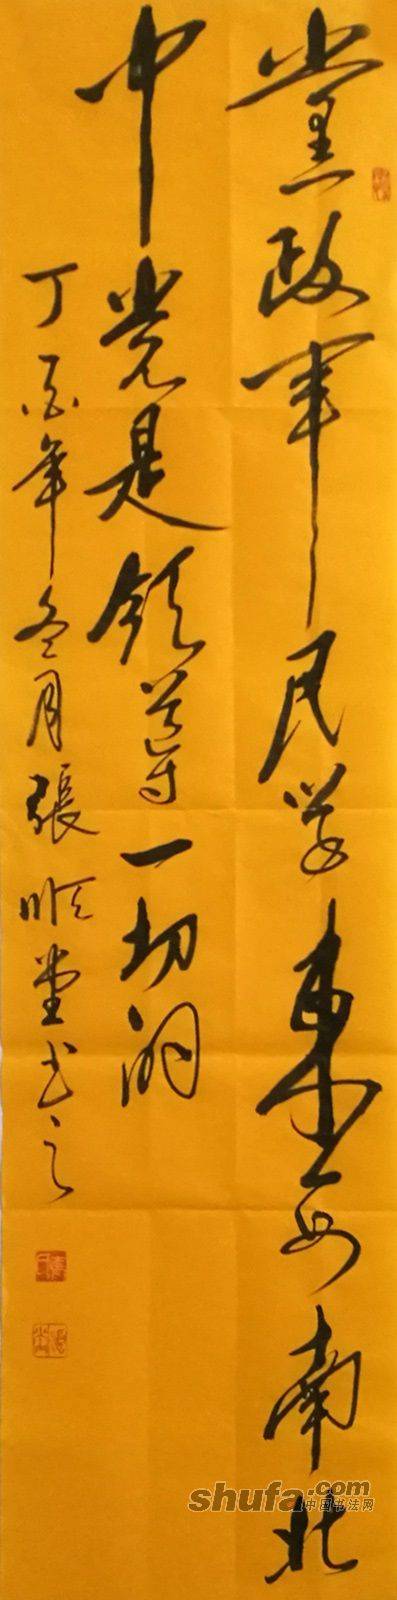 黨政军民学東西南北
中党是领導一切的
丁酉年冬月張顺堂书之
shufa.com
中国书法网